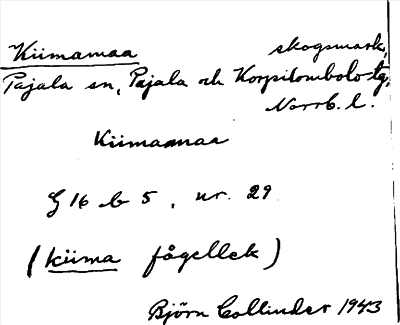 Kiimamaa skogsmark,
Pajala sn, Pajala och Korpilombolo tg,
Norrb. l.
Kiimaanaa
G 16 b 5, nr. 29
(kiima fågellek)
Björn Collinder 1943